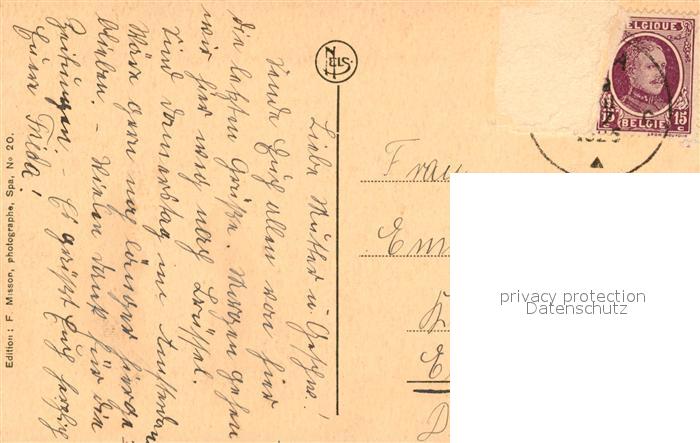 Liebe Mutter u. Geschw.!
Sende Euch allen von hier
die letzten Grüße. Morgen gehen
wir hier weg nach Brüssel.
sind Donnerstag in Amsterdam
Wäre gern noch länger hier ge-
blieben. - Vielen Dank für die
Zeitungen. - Es grüßt Euch herzlich
Eure Frieda!
Edition : F. Misson, photographe, Spa, No 20.
NELS
BELGIQUE
15 C
BELGIE
Frau
privacy protection
Datenschutz